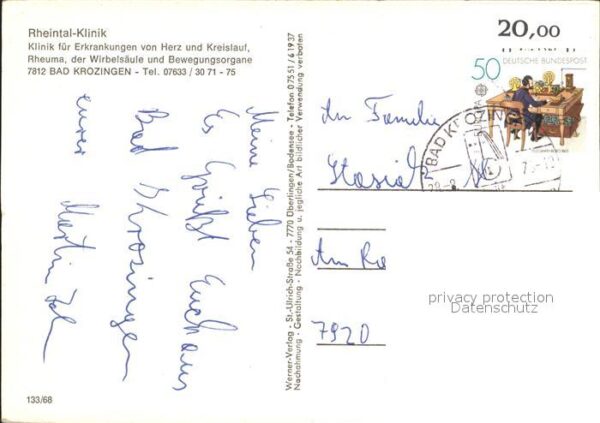 Rheintal-Klinik
Klinik für Erkrankungen von Herz und Kreislauf,
Rheuma, der Wirbelsäule und Bewegungsorgane
7812 BAD KROZINGEN - Tel. 07633 / 30 71 - 75
Meine Lieben
Es Grüßt Euch aus
Bad Khrozingen
eurer Martin
Werner-Verlag - St.-Ulrich-Straße 54 - 7770 Überlingen/Bodensee - Telefon 0 75 51 / 6 19 37
Nachahmung - Gestaltung - Nachbildung u. jegliche Art bildlicher Verwendung verboten
20,00
50
DEUTSCHE BUNDESPOST
BAD KROZINGEN
An Familie
Am
7920
privacy protection
Datenschutz
133/68